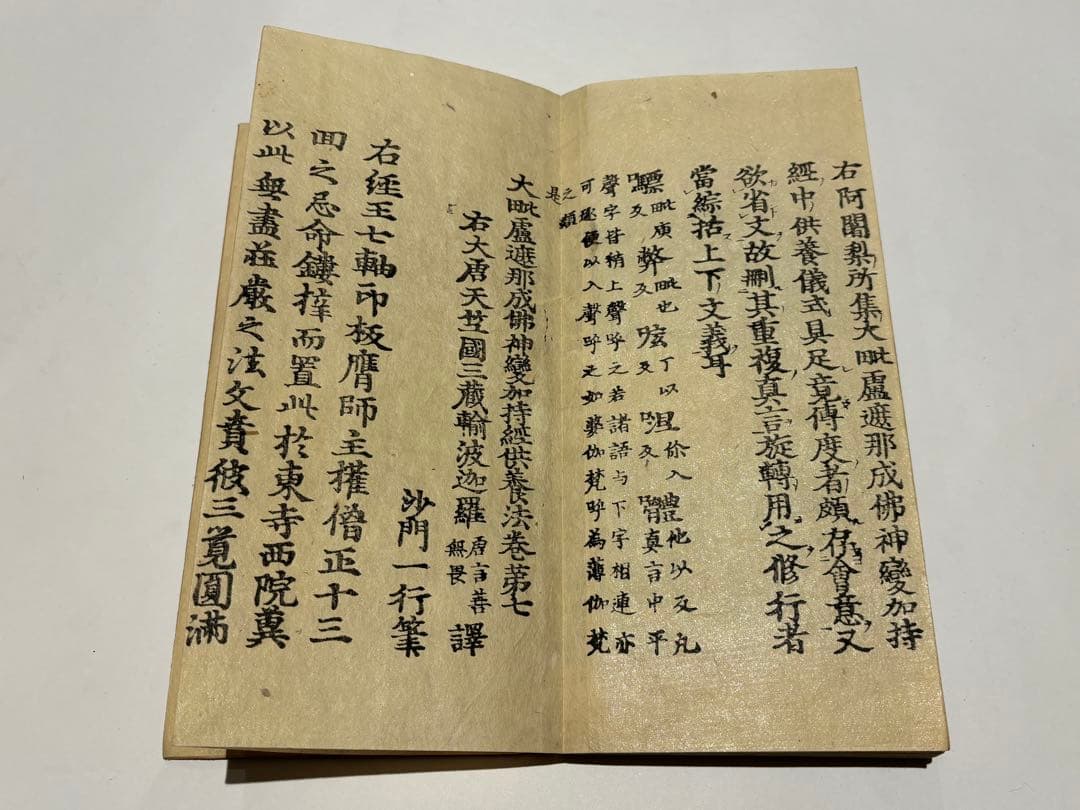 右阿闍梨所集大毗盧遮那成佛神變加持
經中供養儀式具足竟傳度者頗存會意又
欲省文故刪其重複真言旋轉用之修行者
當綜括上下文義耳
驃毗庾反 弊毗也反 呟丁以反 徐入反 體他以反 凡真言中平
聲字皆稍上聲呼之若諸語与下字相連亦
可逐便以入聲呼之如婆伽梵呼為薄伽梵
之類是
大毗盧遮那成佛神變加持經供養法卷第七
右大唐天竺國三藏輸波迦羅唐言善無畏譯
沙門一行筆
右經王七軸印板膺師主權僧正十三
回之忌命鏤挍而置此於東寺西院冀
以此無盡莊嚴之法文賁彼三覓圓滿